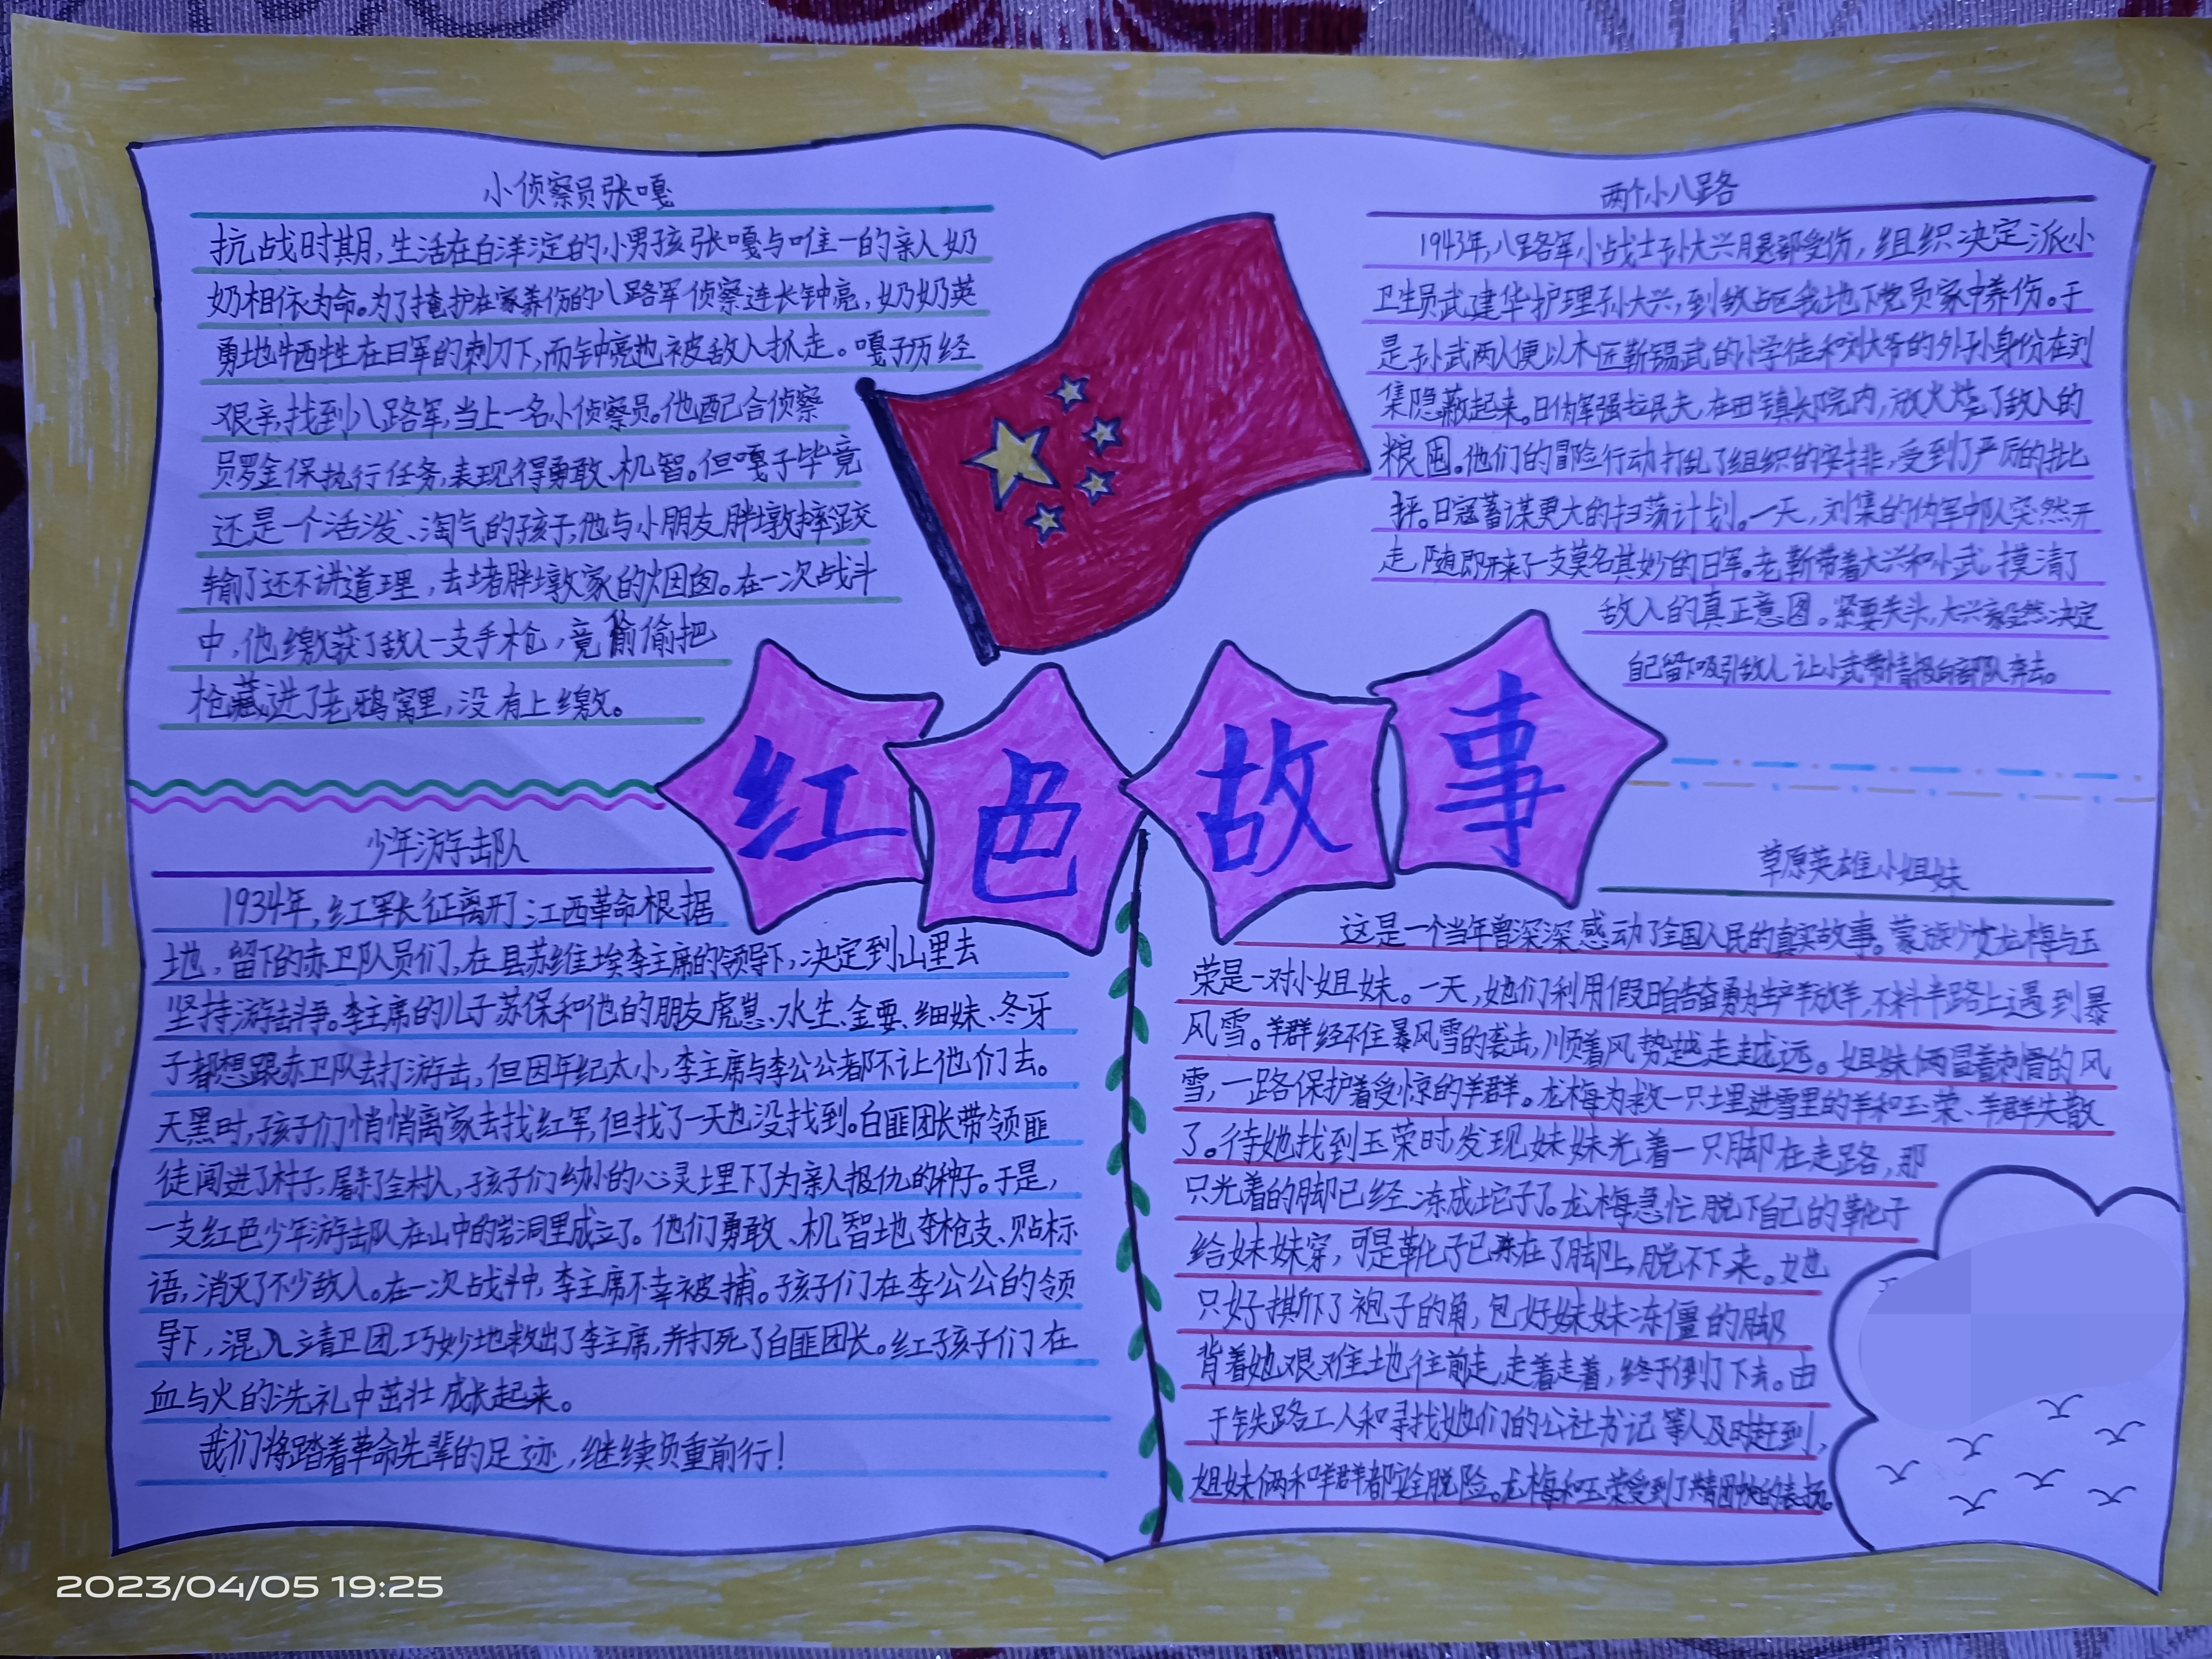 小侦察员张嘎
抗战时期,生活在白洋淀的小男孩张嘎与唯一的亲人奶
奶相依为命。为了掩护在家养伤的八路军侦察连长钟亮,奶奶英
勇地牺牲在日军的刺刀下,而钟亮也被敌人抓走。嘎子历经
艰辛,找到八路军,当上一名小侦察员。他配合侦察
员罗金保执行任务,表现得勇敢、机智。但嘎子毕竟
还是一个活泼、淘气的孩子,他与小朋友胖墩摔跤
输了还不讲道理,去堵胖墩家的烟囱。在一次战斗
中,他缴获了敌人一支手枪,竟偷偷把
枪藏进了老鸦窝里,没有上缴。
两个小八路
1943年,八路军小战士孙大兴腿部受伤,组织决定派小
卫生员武建华护理孙大兴,到敌占区我地下党员家中养伤。于
是孙武两人便以木匠靳锡武的小学徒和刘大爷的外孙身份在刘
集隐蔽起来。日伪军强拉民夫,在田镇长院内,放火烧了敌人的
粮囤。他们的冒险行动打乱了组织的安排,受到了严厉的批
评。日寇蓄谋更大的扫荡计划。一天,刘集的伪军中队突然开
走,随即开来了一支莫名其妙的日军。老靳带着大兴和小武,摸清了
敌人的真正意图。紧要关头,大兴毅然决定
自己留下吸引敌人 让小武带情报向部队奔去。
红色故事
少年游击队
1934年,红军长征离开了江西革命根据
地,留下的赤卫队员们,在县苏维埃李主席的领导下,决定到山里去
坚持游击斗争。李主席的儿子苏保和他的朋友虎崽、水生、金要、细妹、冬牙
子都想跟赤卫队去打游击,但因年纪太小,李主席与李公公都不让他们去。
天黑时,孩子们悄悄离家去找红军,但找了一天也没找到。白匪团长带领匪
徒闯进了村子,屠杀了全村人,孩子们幼小的心灵埋下了为亲人报仇的种子。于是,
一支红色少年游击队在山中的岩洞里成立了。他们勇敢、机智地夺枪支、贴标
语,消灭了不少敌人。在一次战斗中,李主席不幸被捕。孩子们在李公公的领
导下,混入靖卫团,巧妙地救出了李主席,并打死了白匪团长。红孩子们在
血与火的洗礼中茁壮成长起来。
我们将踏着革命先辈的足迹,继续负重前行!
草原英雄小姐妹
这是一个当年曾深深感动了全国人民的真实故事。蒙族少女龙梅与玉
荣是一对小姐妹。一天,她们利用假日自告奋勇为生产羊放羊,不料半路上遇到暴
风雪。羊群经不住暴风雪的袭击,顺着风势越走越远。姐妹俩冒着刺骨的风
雪,一路保护着受惊的羊群。龙梅为救一只埋进雪里的羊和玉荣、羊群失散
了。待她找到玉荣时,发现妹妹光着一只脚在走路,那
只光着的脚已经冻成坨子了。龙梅急忙脱下自己的靴子
给妹妹穿,可是靴子已冻在了脚上,脱不下来。她
只好撕下了袍子的角,包好妹妹冻僵的脚
背着她艰难地往前走,走着走着,终于倒了下去。由
于铁路工人和寻找她们的公社书记等人及时赶到,
姐妹俩和羊群都安全脱险。龙梅和玉荣受到了共青团中央的表扬。
2023/04/05 19:25